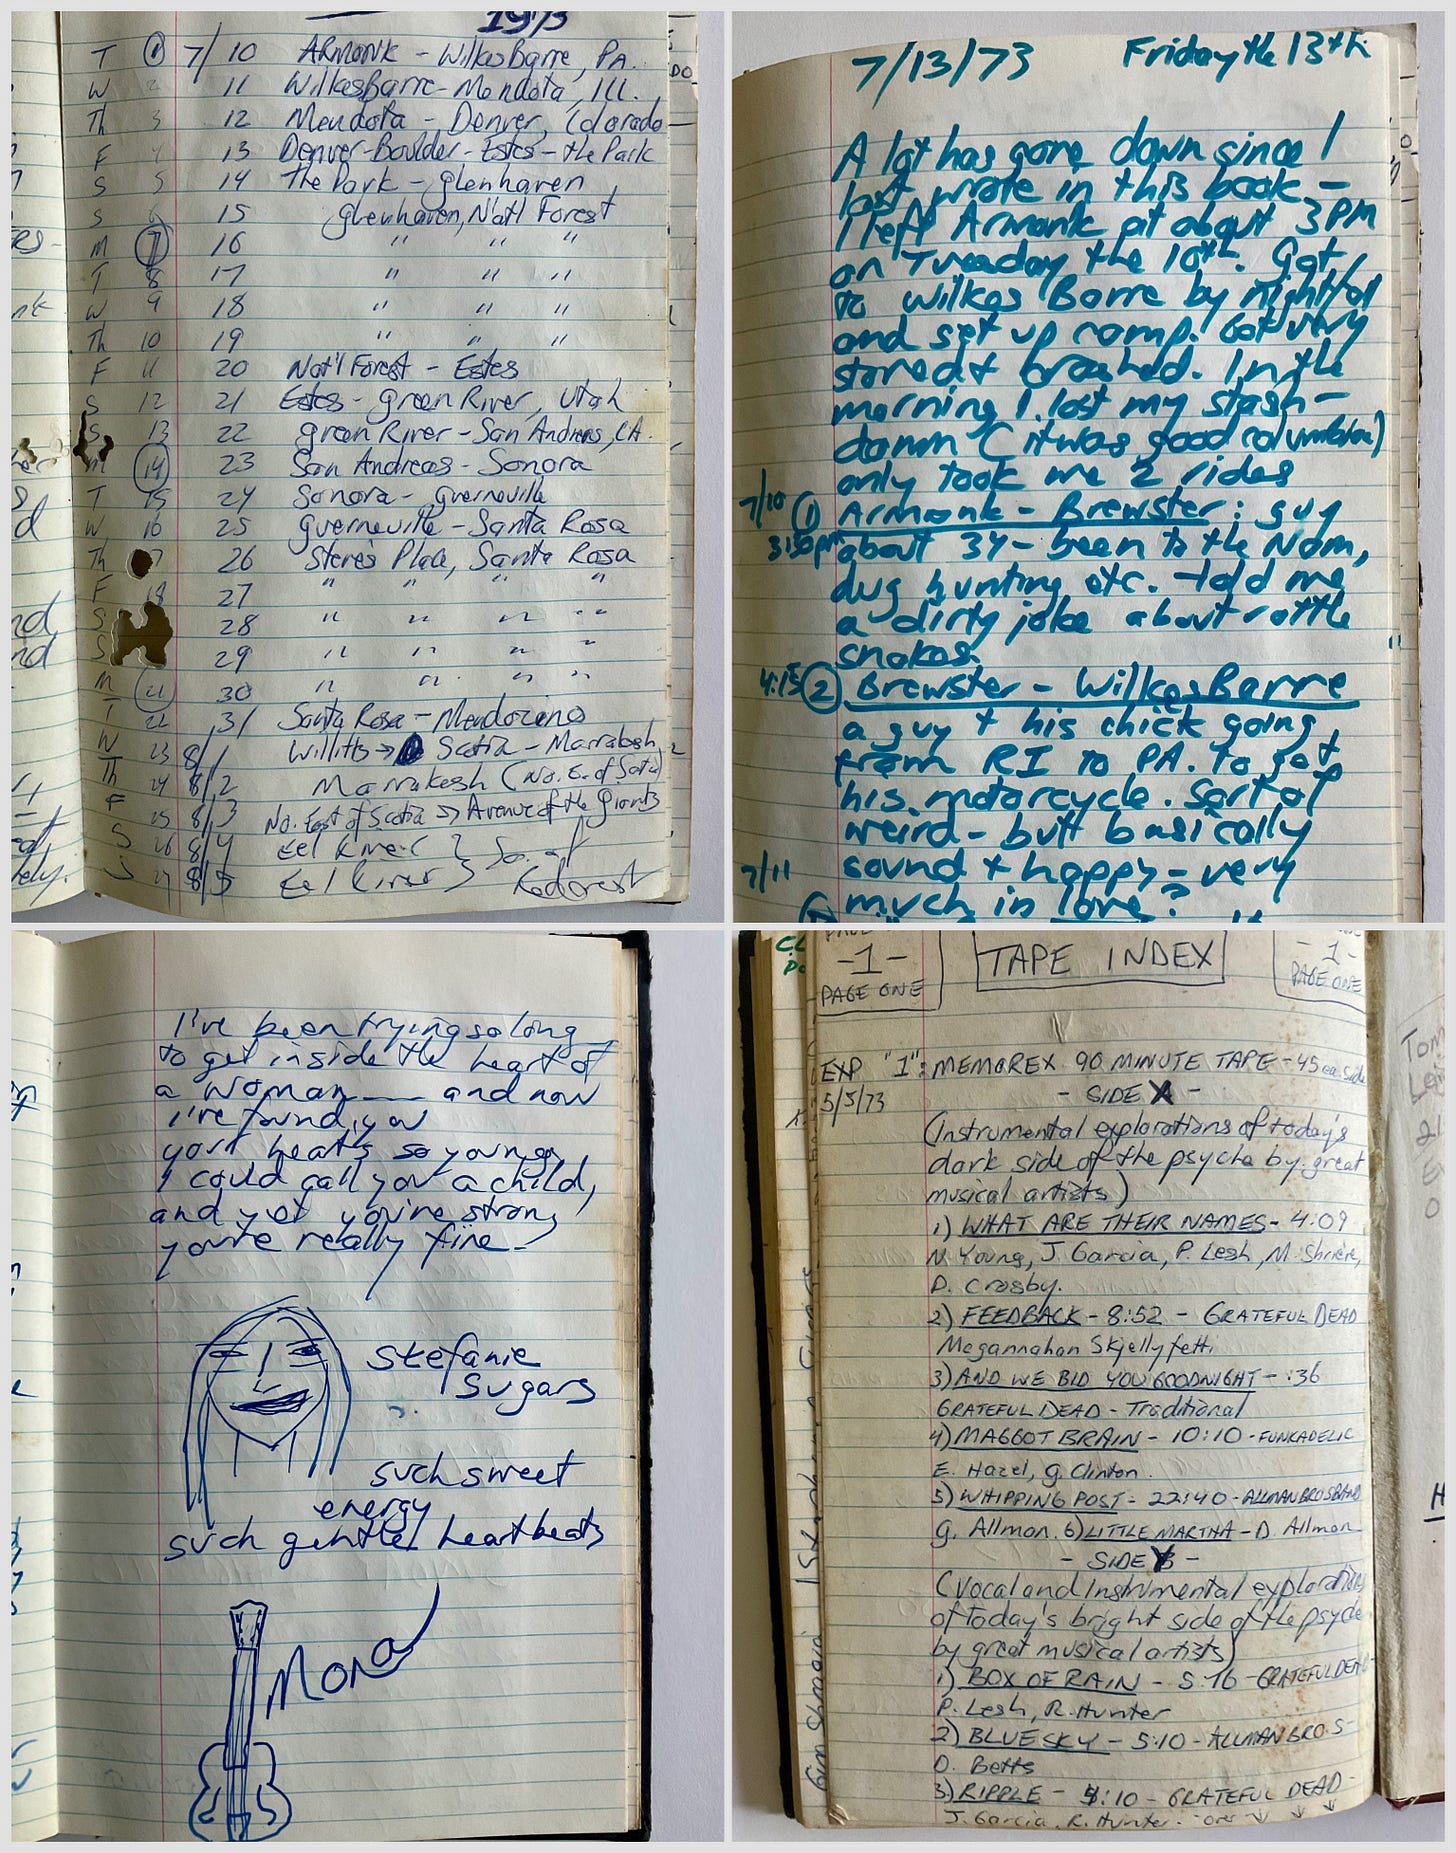 1973
T 1 7/10 ARMONK - Wilkes Barre, PA.
W 2 11 Wilkes Barre - Mendota, Ill.
Th 3 12 Mendota - Denver, Colorado
F 4 13 Denver-Boulder-Estes-the Park
S 5 14 The Park - Glenhaven
S 6 15 Glenhaven, Nat'l Forest
M 7 16 " " "
T 8 17 " " "
W 9 18 " " "
Th 10 19 " " "
F 11 20 Nat'l Forest - Estes
S 12 21 Estes - Green River, Utah
S 13 22 Green River - San Andreas, CA.
M 14 23 San Andreas - Sonora
T 15 24 Sonora - Guerneville
W 16 25 Guerneville - Santa Rosa
Th 7 26 Steve's Place, Santa Rosa
F 18 27 " " " "
S 28 " " " "
S 29 " " " "
M 21 30 " " " "
T 22 31 Santa Rosa - Mendocino
W 23 8/1 Willits → Scotia - Marrakesh
Th 24 8/2 Marrakesh (No. E. of Scotia)
F 25 8/3 No. East of Scotia → Avenue of the Giants
S 26 8/4 Eel River } So. of
S 27 8/5 Eel River } Redcrest
7/13/73 Friday the 13th
A lot has gone down since I
last wrote in this book -
I left Armonk at about 3PM
on Tuesday the 10th. Got
to Wilkes Barre by nightfal
and set up camp. Got very
stoned & broshed. In the
morning I lost my stash -
damn (it was good columbian)
only took me 2 rides
7/10 1 Armonk - Brewster: guy
3:30pm about 34 - been to the Nam,
dug hunting etc. told me
a dirty joke about rattle
snakes.
4:15 2 Brewster - Wilkes Barre
a guy + his chick going
from RI to PA. to get
his motorcycle. Sort of
weird - but basically
sound + happy - very
7/11 much in love?
I've been trying so long
to get inside the heart of
a woman — and now
I've found you
your heart's so young
I could call you a child,
and yet you're strong
you're really fine -
Stefanie
Sugars
such sweet
energy
such gentle heartbeats
Mona
-1- TAPE INDEX -1-
PAGE ONE PAGE ONE
EXP "1": MEMOREX 90 MINUTE TAPE - 45 ea. side
5/5/73 - SIDE X -
(Instrumental explorations of today's
dark side of the psyche by great
musical artists)
1) WHAT ARE THEIR NAMES - 4:09
N. Young, J. Garcia, P. Lesh, M. Shrieve,
D. Crosby.
2) FEEDBACK - 8:52 - GRATEFUL DEAD
Mcgannahan Skjellyfetti
3) AND WE BID YOU GOODNIGHT - :36
GRATEFUL DEAD - Traditional
4) MAGGOT BRAIN - 10:10 - FUNKADELIC
E. Hazel, G. Clinton.
5) WHIPPING POST - 22:40 - ALLMAN BROS BAND
G. Allman. 6) LITTLE MARTHA - D. Allman
- SIDE Y -
(Vocal and Instrumental explorations
of today's bright side of the psyche
by great musical artists)
1) BOX OF RAIN - 5:16 - GRATEFUL DEAD -
P. Lesh, R. Hunter
2) BLUE SKY - 5:10 - ALLMAN BROS -
D. Betts
3) RIPPLE - 4:10 - GRATEFUL DEAD -
J. Garcia, R. Hunter. - over ↓ ↓ ↓